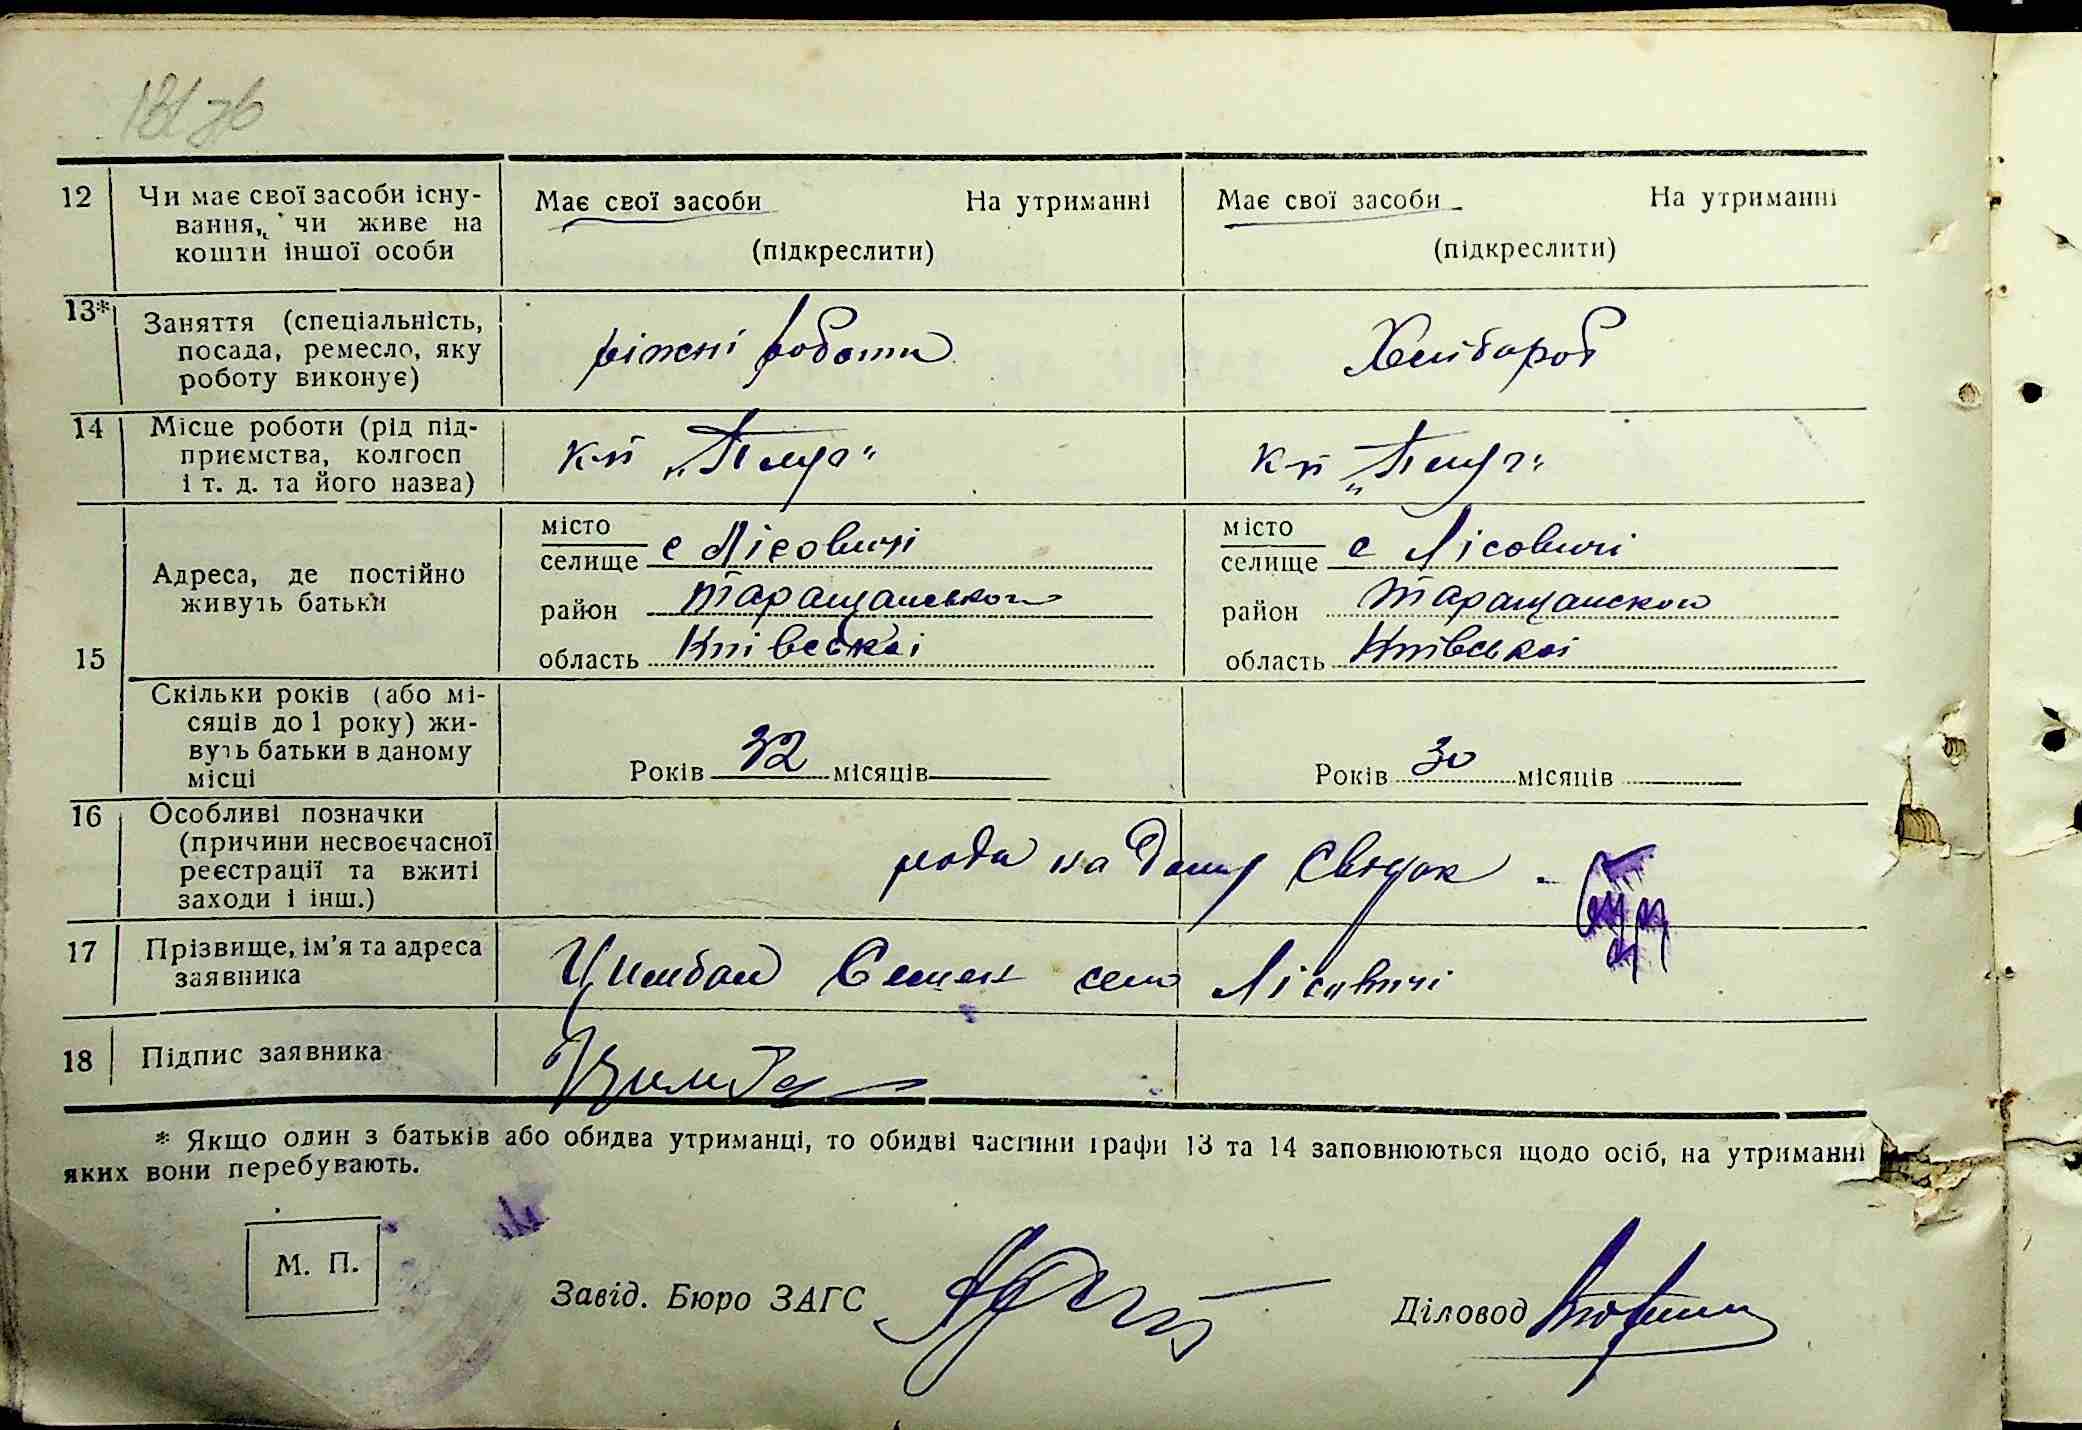 12
Чи має свої засоби існу-
вання, чи живе на
кошти іншої особи
Має свої засоби На утриманні
(підкреслити)
Має свої засоби На утриманні
(підкреслити)
13*
Заняття (спеціальність,
посада, ремесло, яку
роботу виконує)
ріжні роботи
Хлібороб
14
Місце роботи (рід під-
приємства, колгосп
і т. д. та його назва)
15
Адреса, де постійно
живуть батьки
місто
селище с Лісовичі
район Таращанського
область Київської
місто
селище с Лісовичі
район Таращанского
область Київської
Скільки років (або мі-
сяців до 1 року) жи-
вуть батьки в даному
місці
Років 32 місяців
Років 30 місяців
16
Особливі позначки
(причини несвоєчасної
реєстрації та вжиті
заходи і інш.)
на дому
17
Прізвище, ім'я та адреса
заявника
Цимбал Семен село Лісовичі
18
Підпис заявника
* Якщо один з батьків або обидва утриманці, то обидві частини графи 13 та 14 заповнюються щодо осіб, на утриманні
яких вони перебувають.
М. П.
Завід. Бюро ЗАГС
Діловод